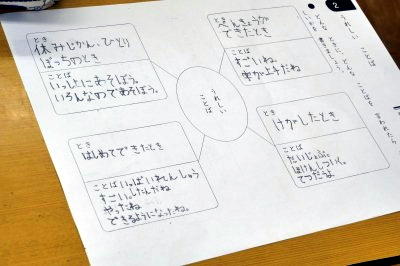 2
うれしい ことば
どんな ときに、どんな ことばを 言われたら
うれしい
ことば
とき
休みじかん、ひとり
ぼっちのとき
ことば
いっしょにあそぼう。
いろんなのであそぼう。
とき
べんきょうが
できたとき
ことば
すごいね。
字が上手だね
とき
はじめてできたとき
ことば いっぱいれんしゅう
すごい。したんだね
やったね
できるようになったね。
とき
けがしたとき
ことば
だいじょぶ。
ほけんしついく。
てつだうよ